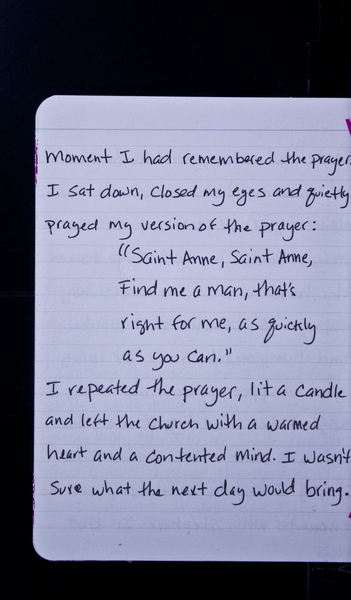 moment I had remembered the prayer.
I sat down, closed my eyes and quietly
prayed my version of the prayer:
"Saint Anne, Saint Anne,
Find me a man, that's
right for me, as quickly
as you can."
I repeated the prayer, lit a candle
and left the church with a warmed
heart and a contented mind. I wasn't
sure what the next day would bring.